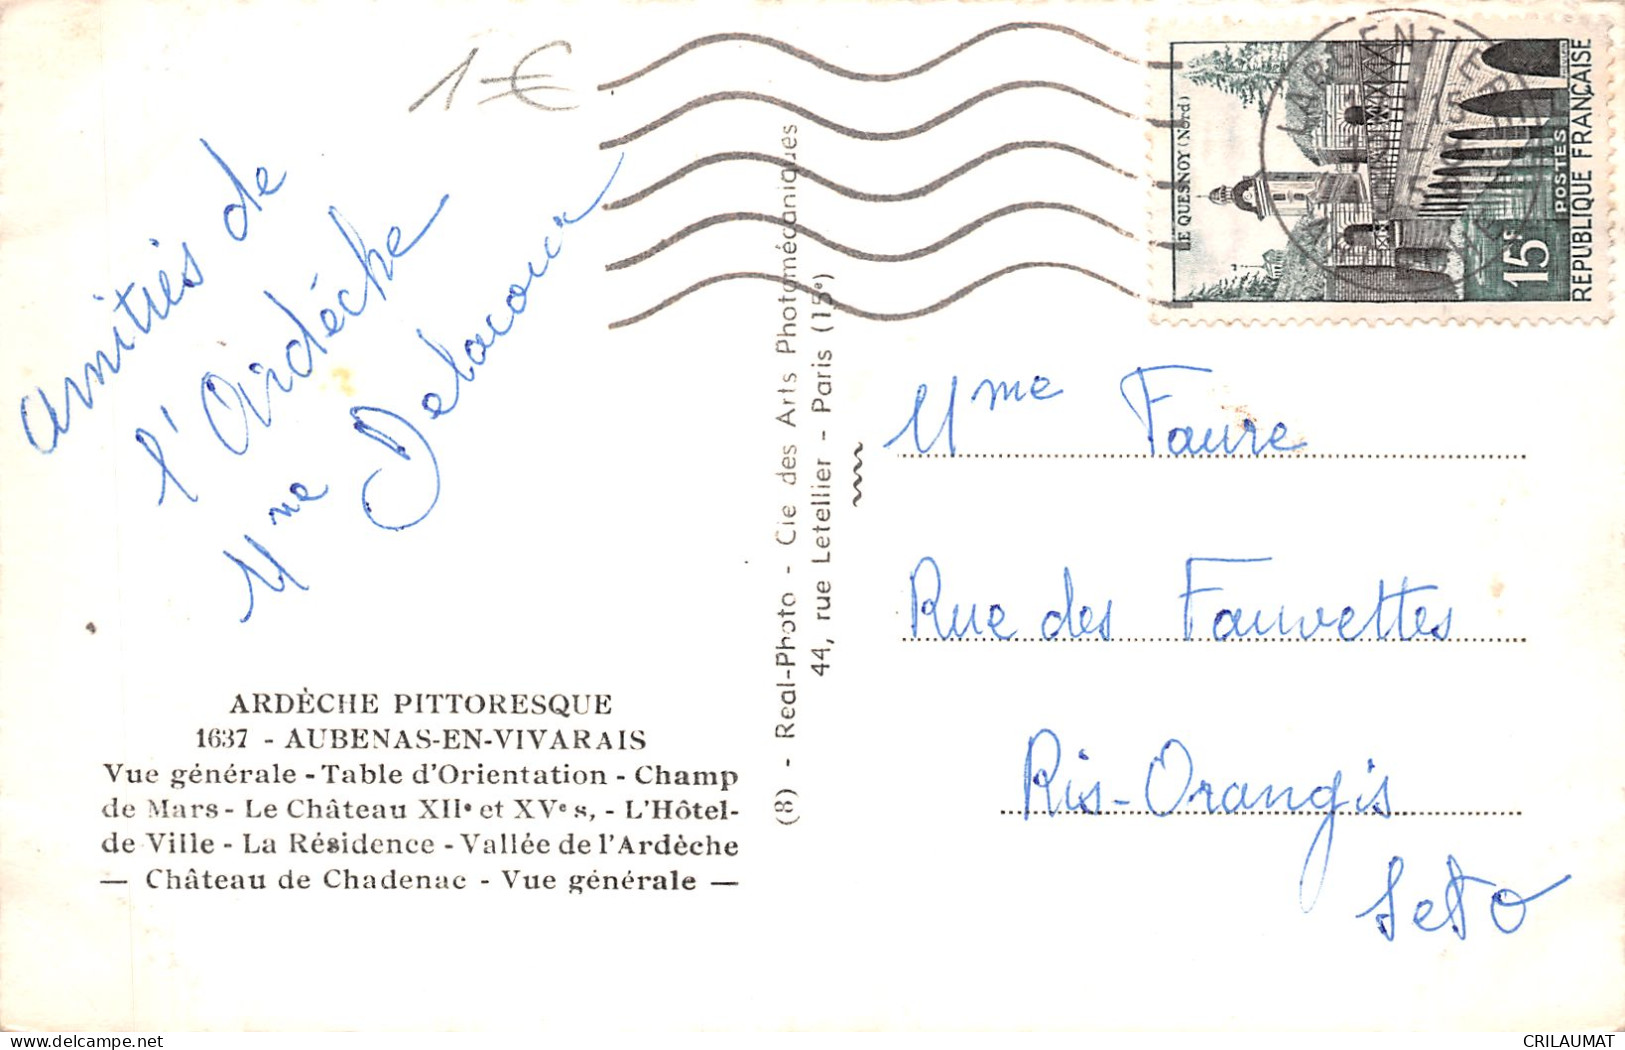 1€
amitiés de
l'Ardèche
Mme Delacour
ARDÈCHE PITTORESQUE
1637 - AUBENAS-EN-VIVARAIS
Vue générale - Table d'Orientation - Champ
de Mars - Le Château XIIe et XVe s, - L'Hôtel-
de Ville - La Résidence - Vallée de l'Ardèche
— Château de Chadenac - Vue générale —
(8) - Real-Photo - Cie des Arts Photomécaniques
44, rue Letellier - Paris (15e)
LE QUESNOY (Nord)
15F
POSTES
REPUBLIQUE FRANÇAISE
LARGENTIERE
ARDECHE
Mme Faure
Rue des Fauvettes
Ris-Orangis
SetO
delcampe.net
CRILAUMAT